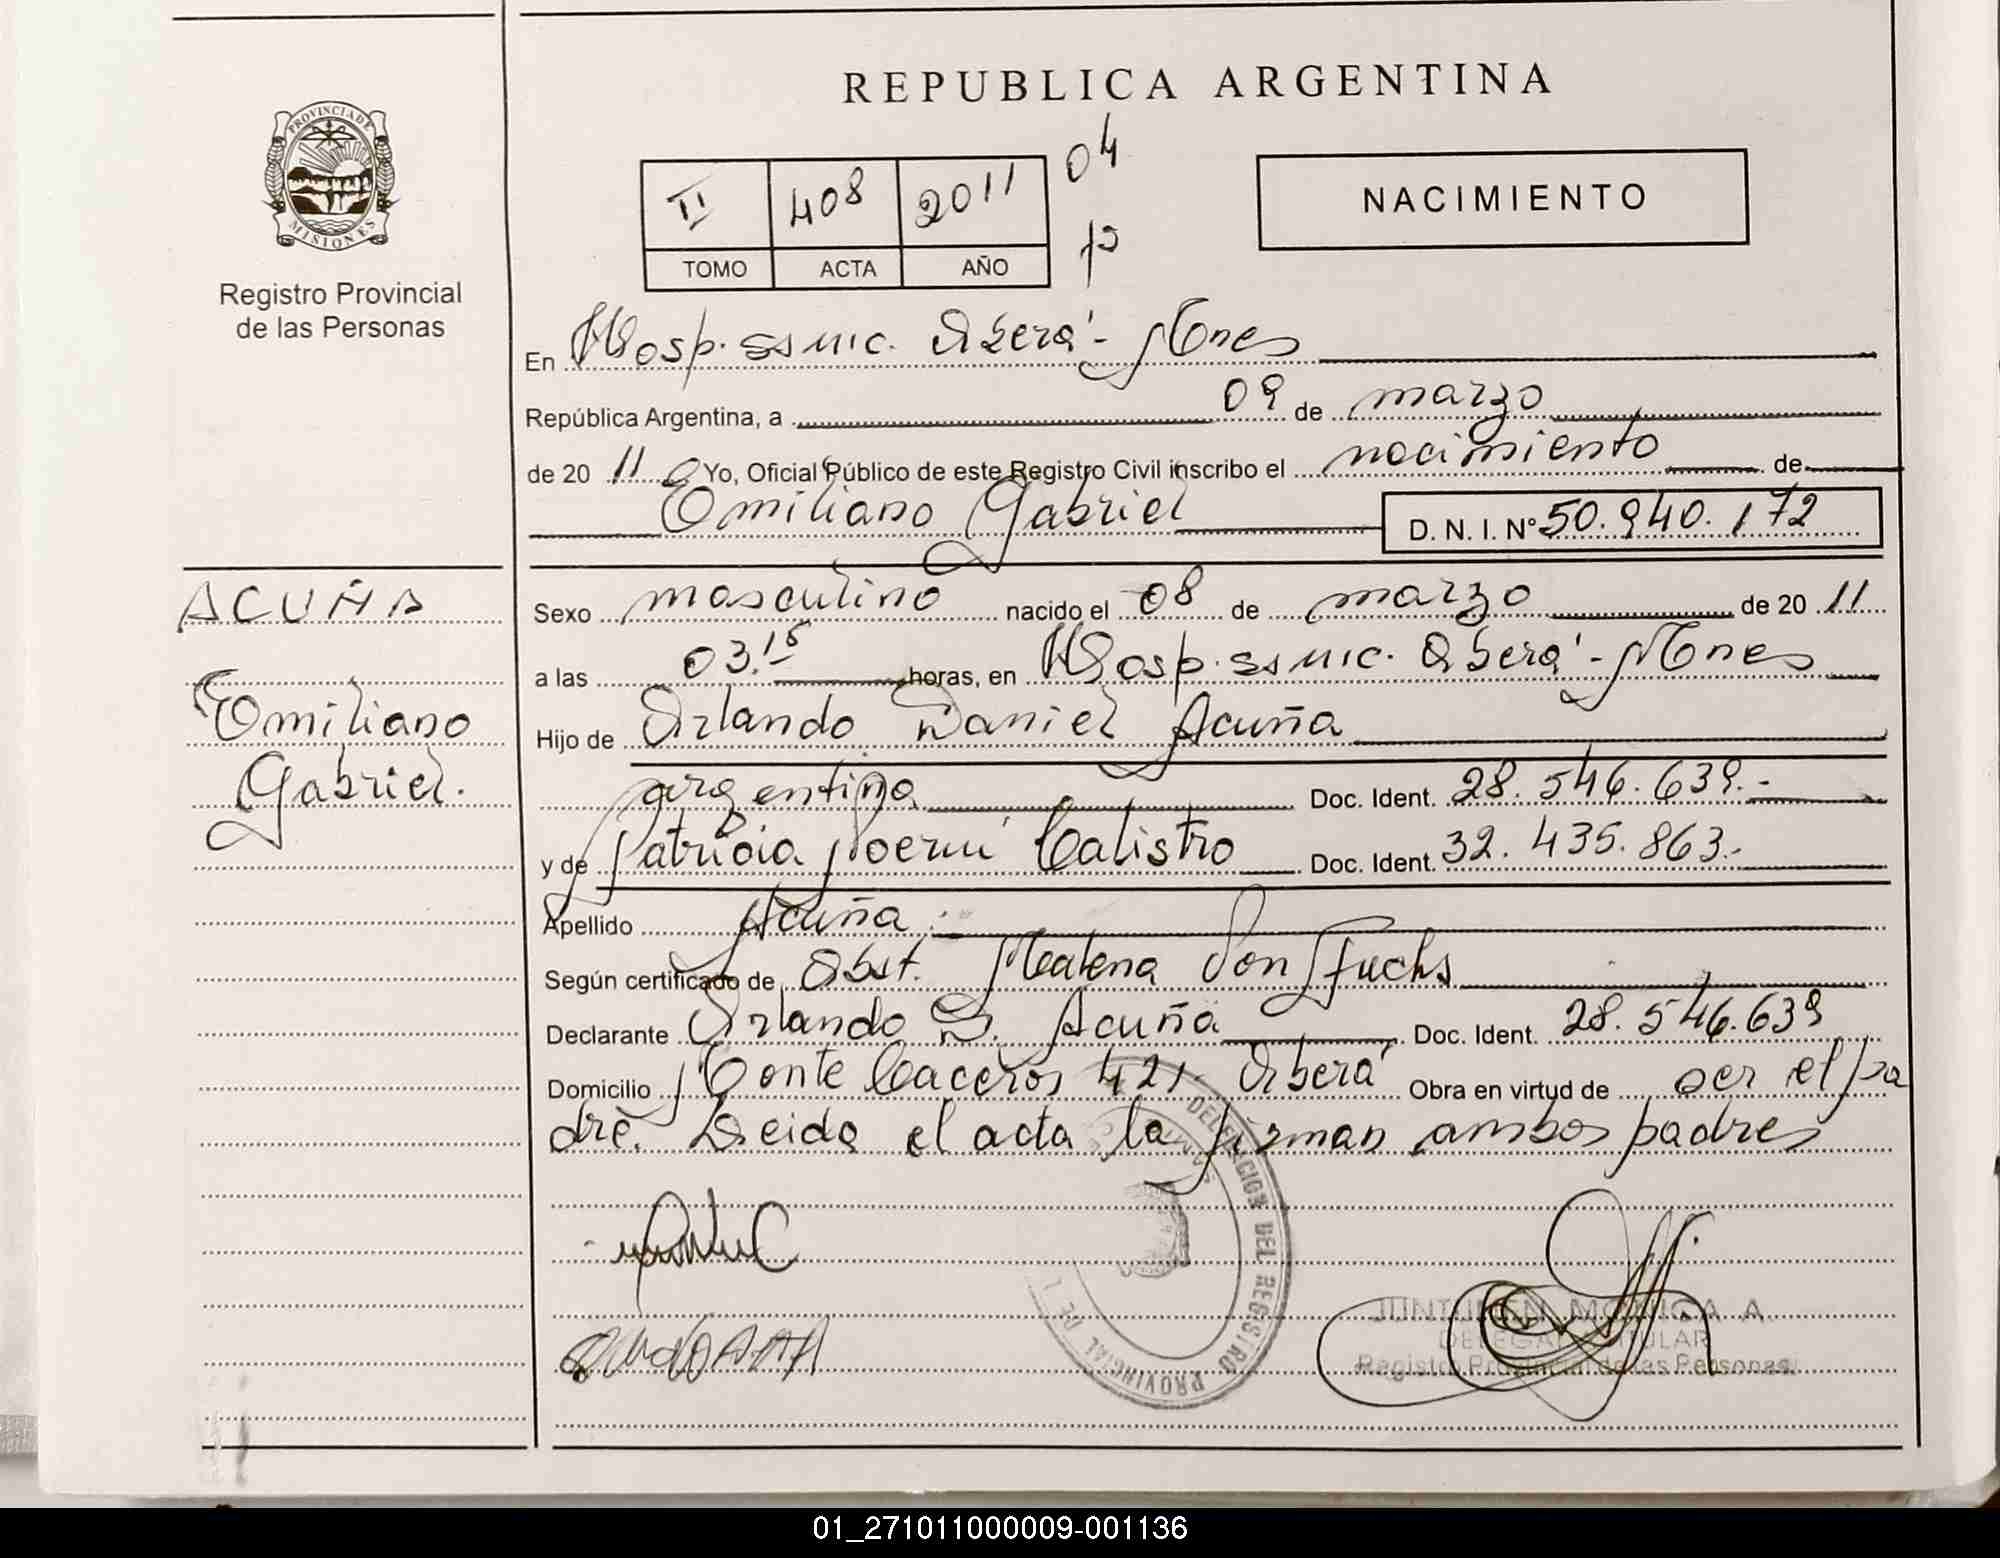 PROVINCIA DE
MISIONES
Registro Provincial
de las Personas
REPUBLICA ARGENTINA
II 408 2011 04
TOMO ACTA AÑO
NACIMIENTO
En Hosp. SSMIC. Oberá - Mnes
República Argentina, a 09 de marzo
de 20 11 Yo, Oficial Público de este Registro Civil inscribo el nacimiento de
Emiliano Gabriel D. N. I. Nº 50.940.172
ACUÑA
Emiliano
Gabriel.
Sexo masculino nacido el 08 de marzo de 20 11
a las 03.15 horas, en Hosp. SSMIC. Oberá - Mnes
Hijo de Orlando Daniel Acuña
argentina Doc. Ident. 28.546.639.-
y de Patricia Noemí Calistro Doc. Ident. 32.435.863.-
Apellido Acuña.-
Según certificado de Obst. Malena Von Fuchs
Declarante Orlando D. Acuña Doc. Ident. 28.546.639
Domicilio Monte Caceros 421. Oberá Obra en virtud de ser el pa
dre. Leida el acta la firman ambos padres
DELEGACION DEL REGISTRO PROVINCIAL DE
JUNTUNEN MONICA A.
DELEGADA TITULAR
Registro Provincial de las Personas
01_271011000009-001136